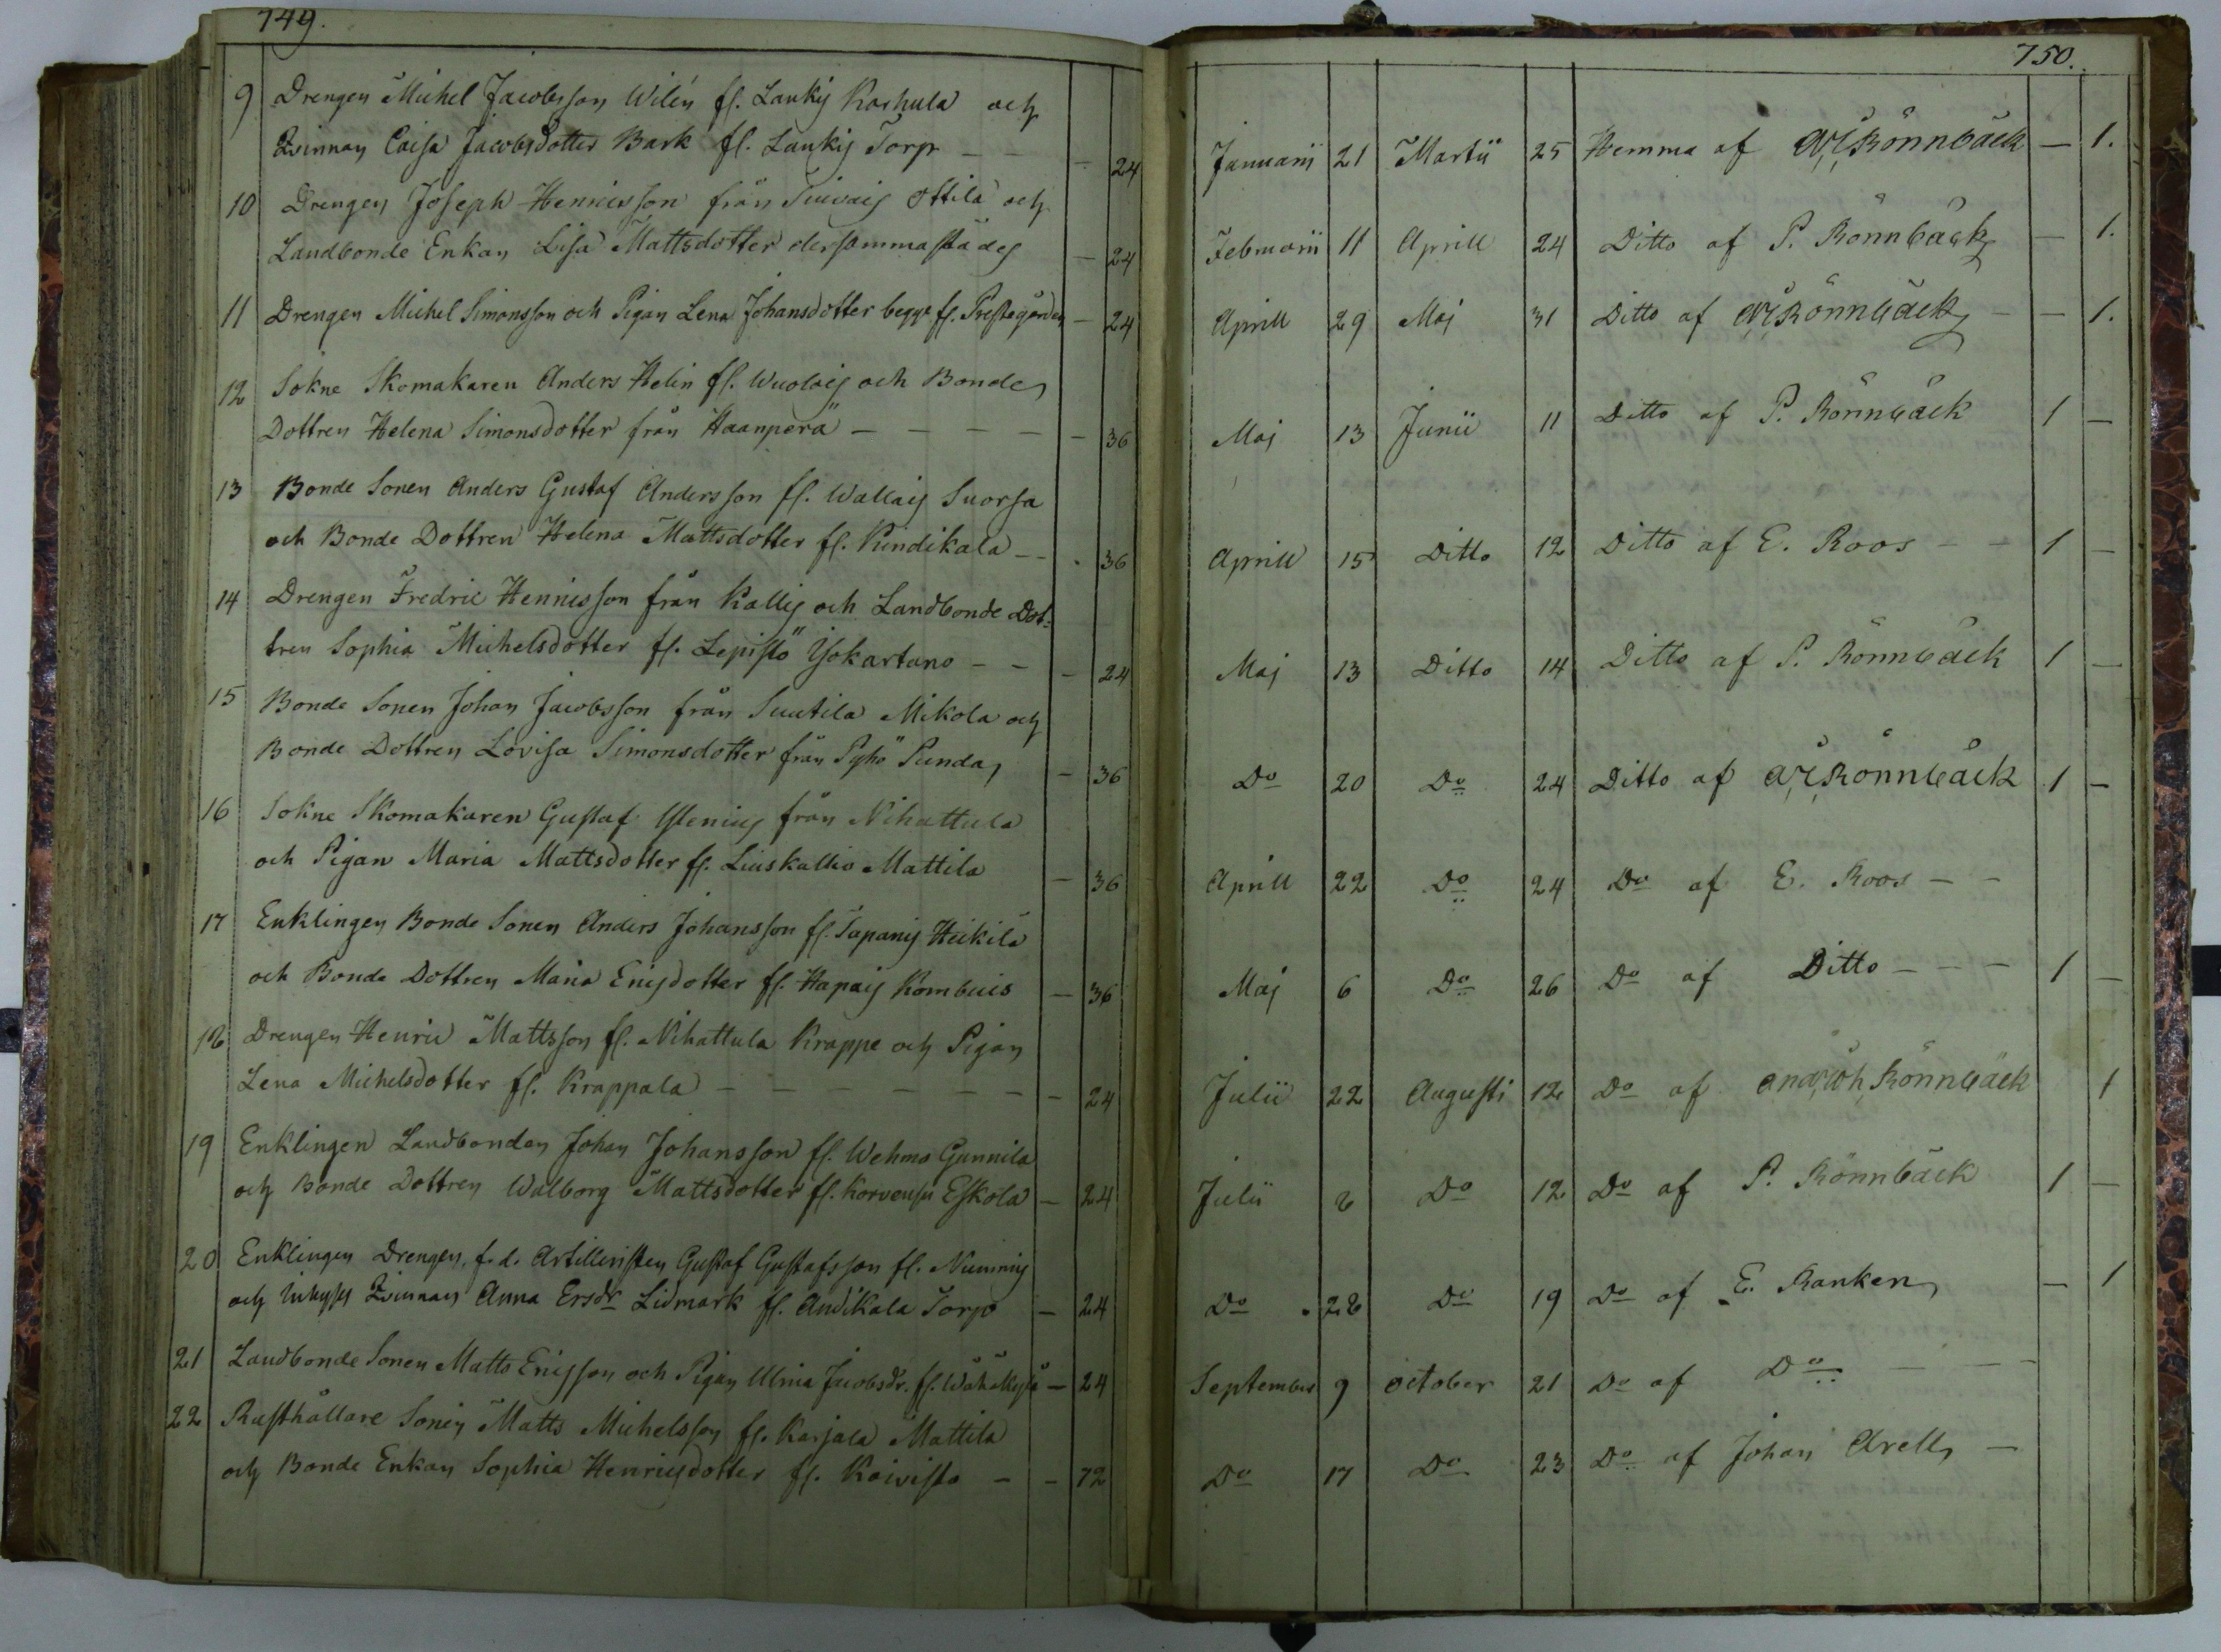 749.
9 Drengen Michel Jacobsson Wilén fr. Lauky Karhula och
Qvinnan Caisa Jacobsdotter Bark fr. Lauky Torp - - - 24
10 Drengen Joseph Henricsson från Ottila och
Landbonde Enkan Lisa Mattsdotter dersammastädes - 24
11 Drengen Michel Simonsson och Pigan Lena Johansdotter begge fr. Prestegården - 24
12 Sokne Skomakaren Anders Helin fr. och Bonde
Dottren Helena Simonsdotter från Haanperä - - - - - 36
13 Bonde Sonen Anders Gustaf Andersson fr. Suorsa
och Bonde Dottren Helena Mattsdotter fr. - - . 36
14 Drengen Fredric Henricsson från Kallis och Landbonde Dot-
tren Sophia Michelsdotter fr. Lepistö Yökartano - - - 24
15 Bonde Sonen Johan Jacobsson från Suutila Mikola och
Bonde Dottren Lovisa Simonsdotter från Pyhö Punda, - 36
16 Sokne Skomakaren Gustaf från Nihattula
och Pigan Maria Mattsdotter fr. Liuskallio Mattila - 36
17 Enklingen Bonde Sonen Anders Johansson fr. Heikilä
och Bonde Dottren Maria Ericsdotter fr. - 36
18 Drengen Henric Mattsson fr. Nihattula Krappe och Pigan
Lena Michelsdotter fr. Krappala - - - - - - 24
19 Enklingen Landbonden Johan Johansson fr. Wehmo Gunnila
och Bonde Dottren Walborg Mattsdotter fr. Korvensu Eskola - 24
20 Enklingen Drengen, f. d. Artilleristen Gustaf Gustafsson fr.
och Qvinnan Anna Ersdr Lidmark fr. Andikala Torp - 24
21 Landbonde Sonen Matts Ericsson och Pigan Ulrica Jacobsdr. fr. - 24
22 Rusthållare Sonen Matts Michelsson fr. Karjala Mattila
och Bonde Enkan Sophia Henricsdotter fr. Koivisto - - 72
750.
Januarii 21 Martii 25 Hemma af Rönnbäck - 1.
Februarii 11 Aprill 24 Ditto af P. Rönnbäck - 1.
Aprill 29 Maj 31 Ditto af Rönnbäck - - 1.
Maj 13 Junii 11 Ditto af P. Rönnbäck 1 -
Aprill 15 Ditto 12 Ditto af E. Roos - - 1 -
Maj 13 Ditto 14 Ditto af P. Rönnbäck 1 -
Do 20 Do 24 Ditto af Rönnbäck 1 -
Aprill 22 Do 24 Do af E. Roos - -
Maj 6 Do 26 Do af Ditto - - - 1 -
Julii 22 Augusti 12 Do af Rönnbäck 1
Julii 8 Do 12 Do af P. Rönnbäck 1 -
Do 28 Do 19 Do af E. Ranken - 1
September 9 october 21 Do af Do - - -
Do 17 Do 23 Do af Johan Arell -